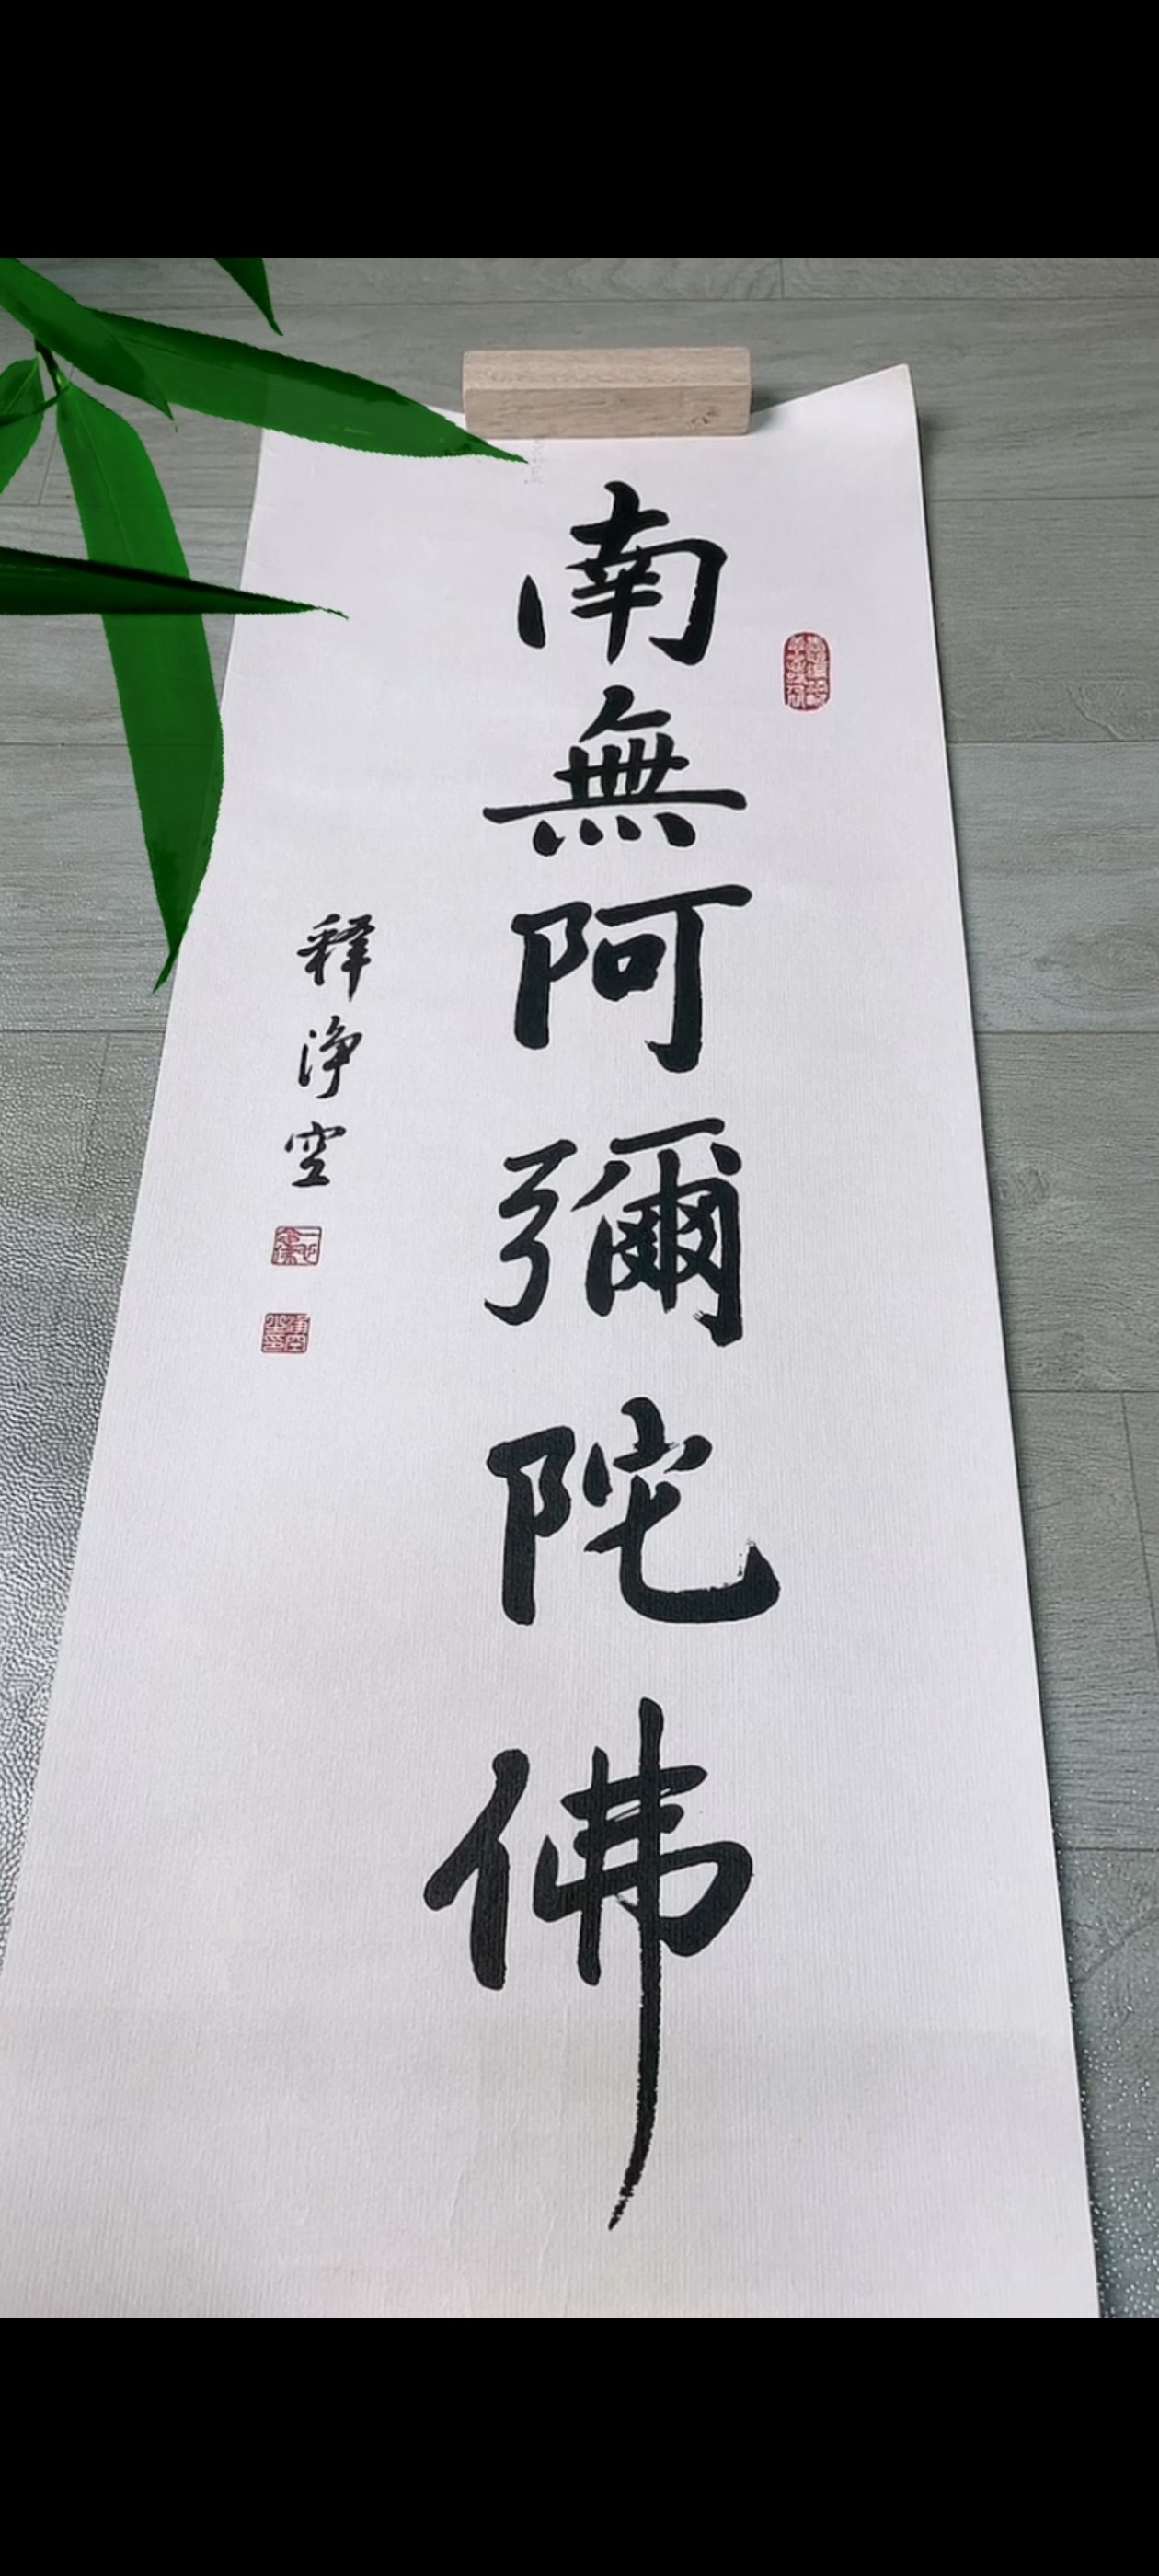 南無阿彌陀佛
释淨空